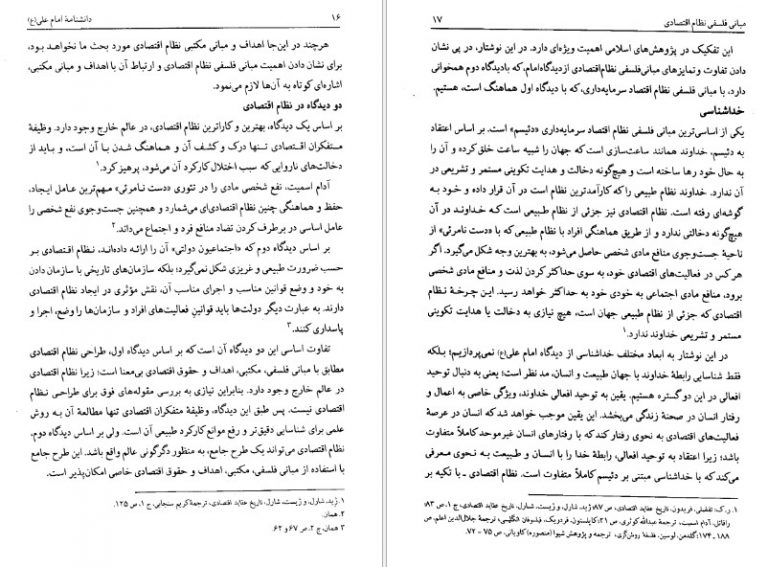 ۱۶
دانشنامهٔ امام علی(ع)
هرچند در این‌جا اهداف و مبانی مکتبی نظام اقتصادی مورد بحث ما نخواهد بود،
برای نشان دادن اهمیت مبانی فلسفی نظام اقتصادی و ارتباط آن با اهداف و مبانی مکتبی،
اشاره‌ای کوتاه به آن‌ها لازم می‌نمود.
دو دیدگاه در نظام اقتصادی
بر اساس یک دیدگاه، بهترین و کاراترین نظام اقتصادی، در عالم خارج وجود دارد. وظیفهٔ
متفکران اقتصادی تنها درک و کشف آن و هماهنگ شدن با آن است، و باید از
دخالت‌های ناروایی که سبب اختلال کارکرد آن می‌شود، پرهیز کرد.۱
آدام اسمیت، نفع شخصی مادی را در تئوری «دست نامرئی» مهم‌ترین عامل ایجاد،
حفظ و هماهنگی چنین نظام اقتصادی‌ای می‌شمارد و همچنین جست‌وجوی نفع شخصی را
عامل اساسی در برطرف کردن تضاد منافع فرد و اجتماع می‌داند.۲
بر اساس دیدگاه دوم که «اجتماعیون دولتی» آن را ارائه داده‌اند، نظام اقتصادی بر
حسب ضرورت طبیعی و غریزی شکل نمی‌گیرد؛ بلکه سازمان‌های تاریخی با سازمان دادن
به خود و وضع قوانین مناسب و اجرای مناسب آن، نقش مؤثری در ایجاد نظام اقتصادی
دارند. به عبارت دیگر دولت‌ها باید قوانین فعالیت‌های افراد و سازمان‌ها را وضع، اجرا و
پاسداری کنند.۳
تفاوت اساسی این دو دیدگاه آن است که بر اساس دیدگاه اول، طراحی نظام اقتصادی
مطابق با مبانی فلسفی، مکتبی، اهداف و حقوق اقتصادی بی‌معنا است؛ زیرا نظام اقتصادی
در عالم خارج وجود دارد. بنابراین نیازی به بررسی مقوله‌های فوق برای طراحی نظام
اقتصادی نیست. پس طبق این دیدگاه، وظیفهٔ متفکران اقتصادی تنها مطالعهٔ آن به روش
علمی برای شناسایی دقیق‌تر و رفع موانع کارکرد طبیعی آن است. ولی بر اساس دیدگاه دوم،
نظام اقتصادی می‌تواند یک طرح جامع، به منظور دگرگونی عالم واقع باشد. این طرح جامع
با استفاده از مبانی فلسفی، مکتبی، اهداف و حقوق اقتصادی خاصی امکان‌پذیر است.
۱. ژید، شارل، و ژیست، شارل، تاریخ عقاید اقتصادی، ترجمهٔ کریم سنجابی، ج ۱، ص ۱۲۵.
۲. همان.
۳. همان، ج ۲، ص ۶۷ و ۶۲.
مبانی فلسفی نظام اقتصادی
۱۷
این تفکیک در پژوهش‌های اسلامی اهمیت ویژه‌ای دارد. در این نوشتار، در پی نشان
دادن تفاوت و تمایزهای مبانی فلسفی نظام اقتصادی از دیدگاه امام، که با دیدگاه دوم همخوانی
دارد، با مبانی فلسفی نظام اقتصاد سرمایه‌داری، که با دیدگاه اول هماهنگ است، هستیم.
خداشناسی
یکی از اساسی‌ترین مبانی فلسفی نظام اقتصاد سرمایه‌داری «دئیسم» است. بر اساس اعتقاد
به دئیسم، خداوند همانند ساعت‌سازی است که جهان را شبیه ساعت خلق کرده و آن را
به حال خود رها ساخته است و هیچ‌گونه دخالت و هدایت تکوینی مستمر و تشریعی در
آن ندارد. خداوند نظام طبیعی را که کارآمدترین نظام است در آن قرار داده و خود به
گوشه‌ای رفته است. نظام اقتصادی نیز جزئی از نظام طبیعی است که خداوند در آن
هیچ‌گونه دخالتی ندارد و از طریق هماهنگی افراد با نظام طبیعی که با «دست نامرئی» از
ناحیهٔ جست‌وجوی منافع مادی شخصی حاصل می‌شود، به بهترین وجه شکل می‌گیرد. اگر
هر کس در فعالیت‌های اقتصادی خود، به سوی حداکثر کردن لذت و منافع مادی شخصی
برود، منافع مادی اجتماعی به خودی خود به حداکثر خواهد رسید. این چرخهٔ نظام
اقتصادی که جزئی از نظام طبیعی جهان است، هیچ نیازی به دخالت یا هدایت تکوینی
مستمر و تشریعی خداوند ندارد.۱
در این نوشتار به ابعاد مختلف خداشناسی از دیدگاه امام علی(ع) نمی‌پردازیم؛ بلکه
فقط شناسایی رابطهٔ خداوند با جهان طبیعت و انسان، مد نظر است؛ یعنی به دنبال توحید
افعالی در این دو گستره هستیم. یقین به توحید افعالی خداوند، ویژگی خاصی به اعمال و
رفتار انسان در صحنهٔ زندگی می‌بخشد. این یقین موجب خواهد شد که انسان در عرصهٔ
فعالیت‌های اقتصادی به نحوی رفتار کند که با رفتارهای انسان غیر موحد کاملاً متفاوت
باشد؛ زیرا اعتقاد به توحید افعالی، رابطهٔ خدا با انسان و طبیعت به نحوی معرفی
می‌کند که با خداشناسی مبتنی بر دئیسم کاملاً متفاوت است. نظام اقتصادی ـ با تکیه بر
۱. ر.ک: تفضلی، فریدون، تاریخ عقاید اقتصادی، ص ۸۷؛ ژید، شارل، و ژیست، شارل، تاریخ عقاید اقتصادی، ج ۱، ص ۸۳؛
آدام اسمیت، ترجمهٔ عبدالله کوثری، ص ۳۱؛ کاپلستون، فردریک، فیلسوفان انگلیسی، ترجمهٔ جلال‌الدین اعلم، ص
۱۸۸ ـ ۱۷۴؛ گلدمن، لوسین، فلسفهٔ روشن‌گری، ترجمه و پژوهش شیوا (منصوره) کاویانی، ص ۷۵ ـ ۷۲.